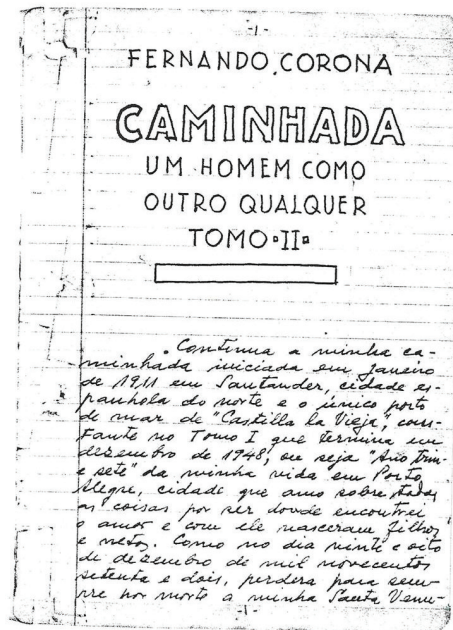 -1-
FERNANDO CORONA
CAMINHADA
UM HOMEM COMO
OUTRO QUALQUER
TOMO II
Continua a minha ca-
minhada iniciada em janeiro
de 1911 em Santander, cidade es-
panhola do norte e o único porto
de mar de "Castilla la Vieja", cons-
tante no Tomo I que termina em
dezembro de 1948, ou seja "Ano trin-
e sete" da minha vida em Porto
Alegre, cidade que amo sobre todas
as coisas por ser donde encontrei
o amor e com ele nasceram filhos
e netos. Como no dia vinte e oito
de dezembro de mil novecentos
setenta e dois, perdera para sem-
pre por morte a minha Santa
-1-